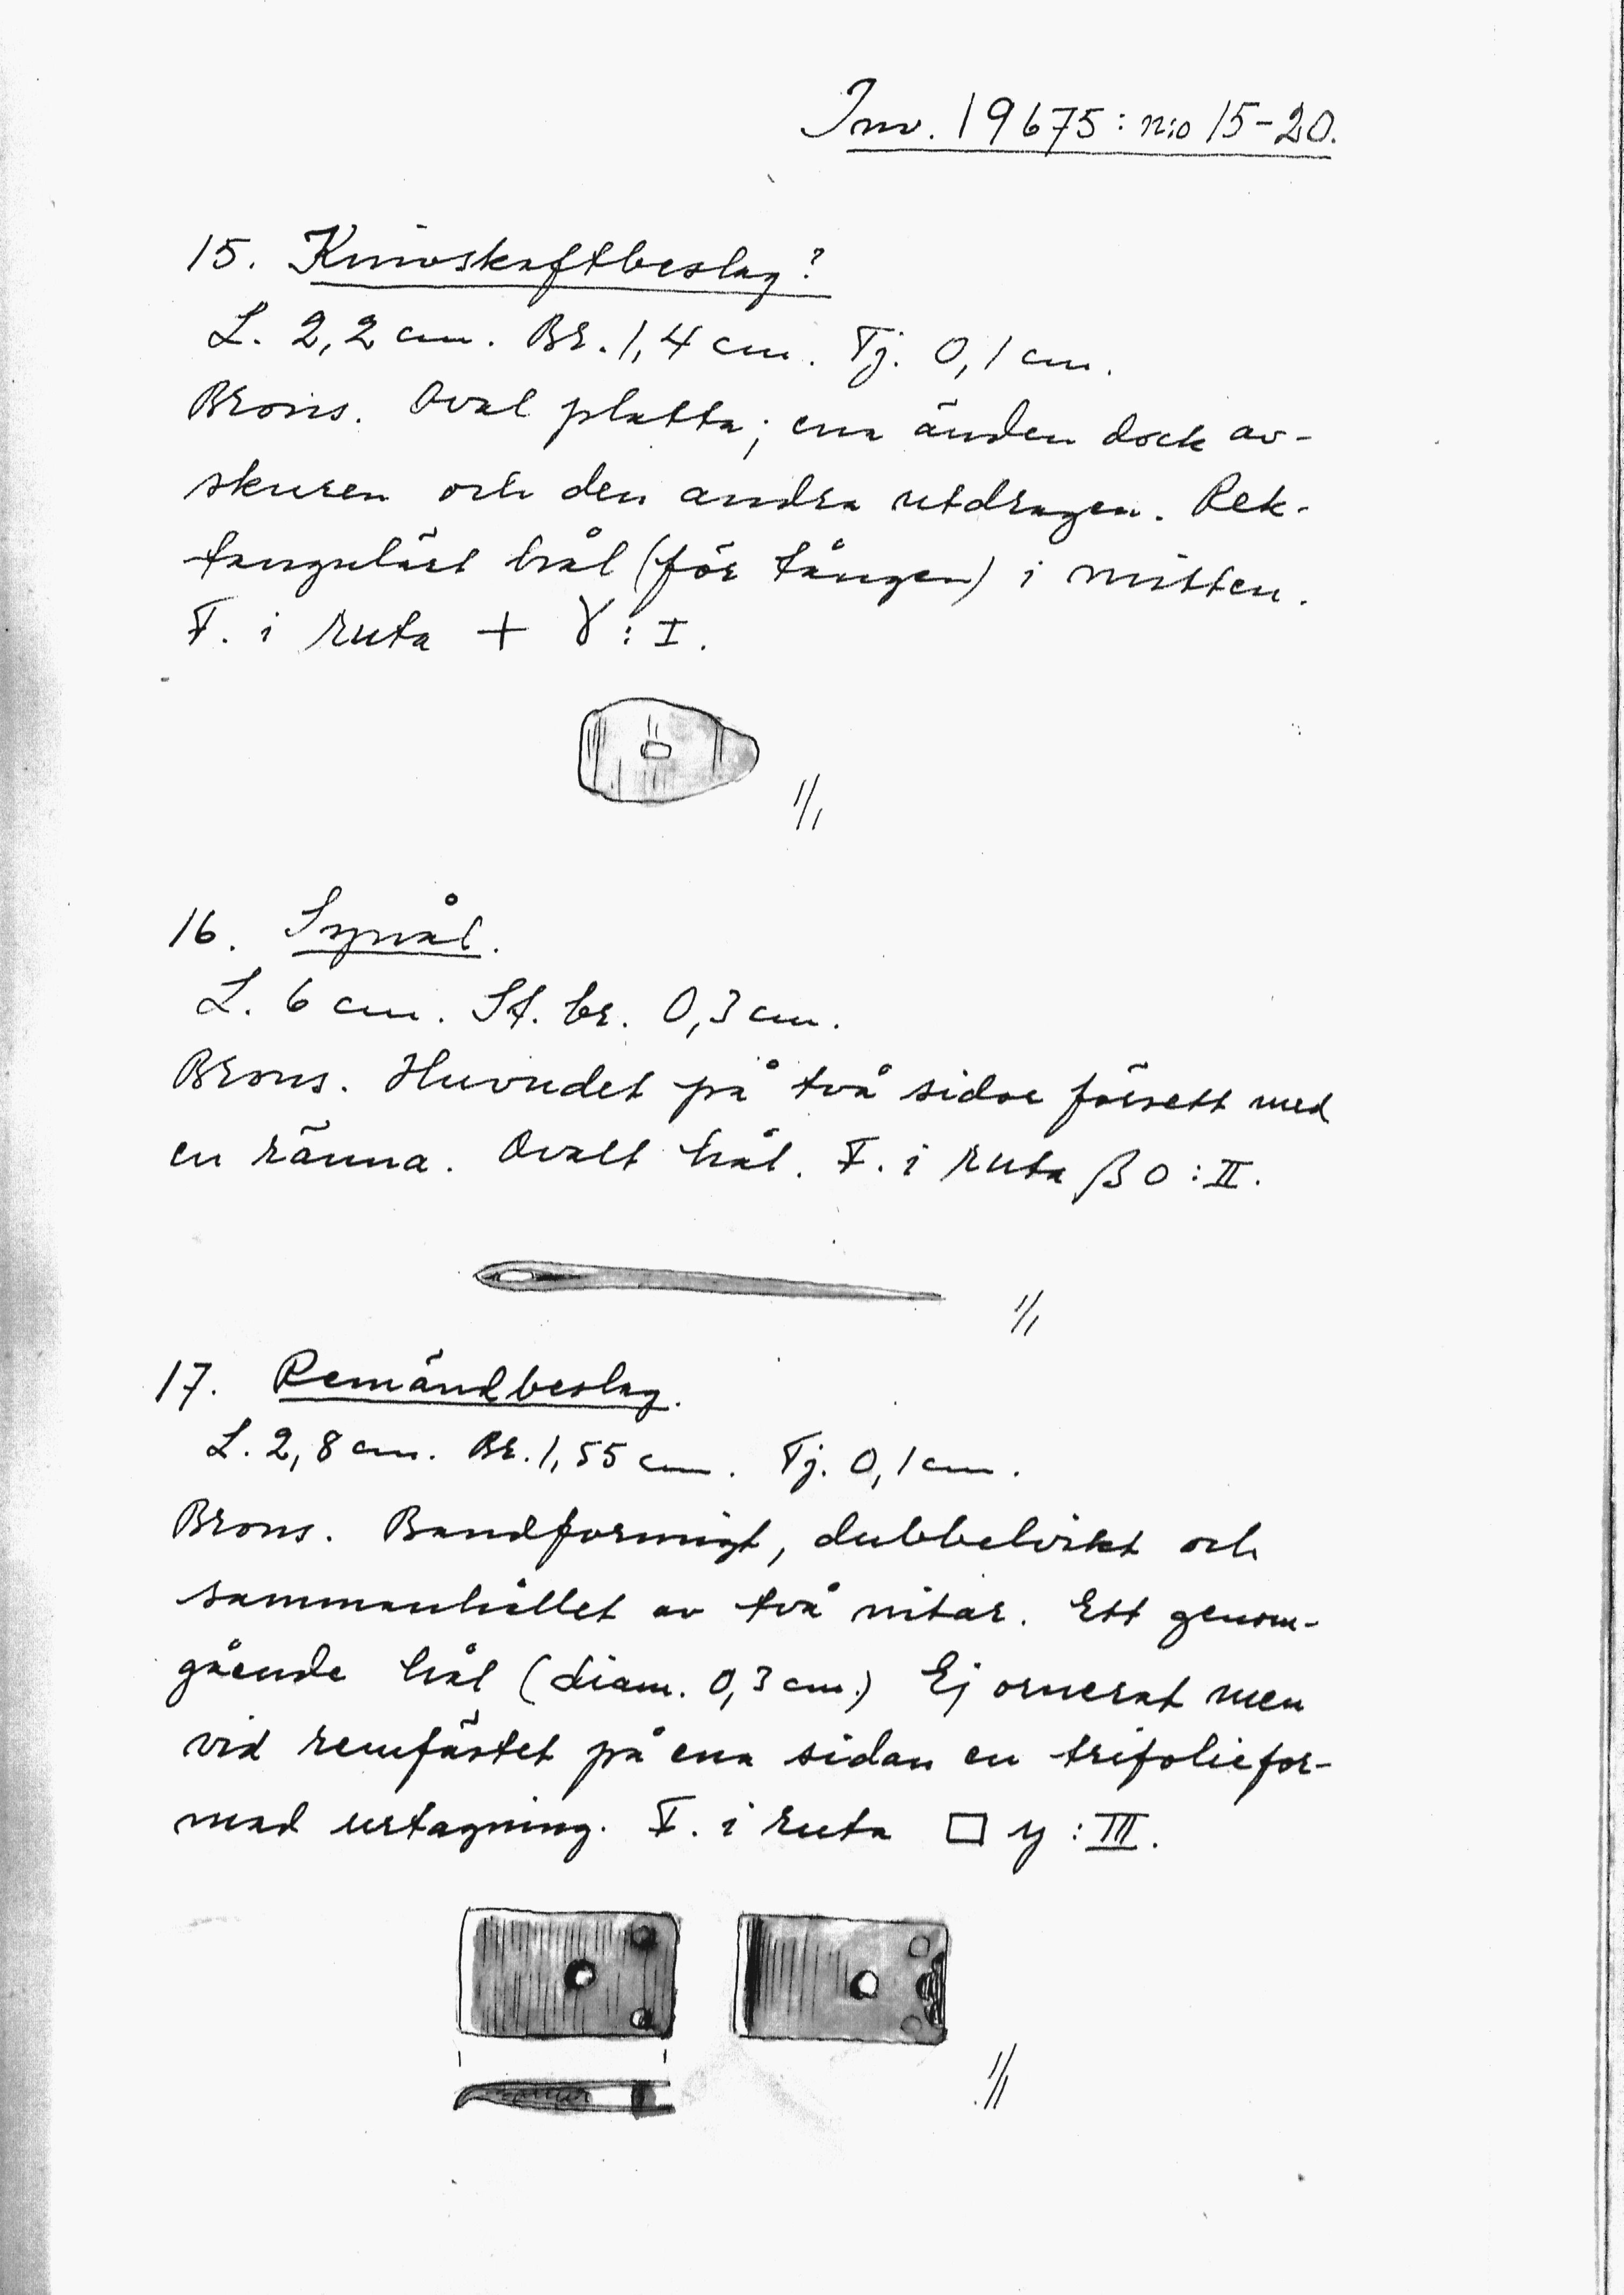 Inv. 19675: n:o 15-20.
15. Knivskaftbeslag?
L. 2,2 cm. Br. 1,4 cm. Tj. 0,1 cm.
Brons. Oval platta; ena änden dock av-
skuren och den andra utdragen. Rek-
tangulärt hål (för tången) i mitten.
F. i ruta + γ : I.
1/1
16. Synål.
L. 6 cm. St. br. 0,3 cm.
Brons. Huvudet på två sidor försett med
en ränna. Ovalt hål. F. i ruta β0 : II.
1/1
17. Remändbeslag.
L. 2,8 cm. Br. 1,55 cm. Tj. 0,1 cm.
Brons. Bandformigt, dubbelvikt och
sammanhållet av två nitar. Ett genom-
gående hål (diam. 0,3 cm.) Ej ornerat men
vid remfästet på ena sidan en trifoliefor-
mad urtagning. F. i ruta □ y : III.
1/1